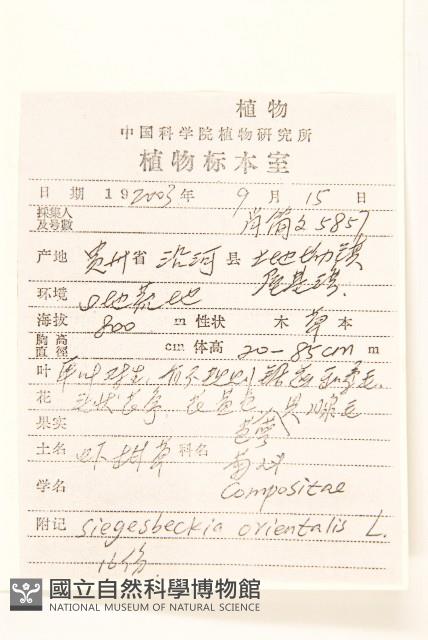 植物
中国科学院植物研究所
植物标本室
日期 19 2003年 9月 15日
採集人
及号数 简 5857
产地 贵州省 沿河县 土地坳镇
环境 地
海拔 800 m 性状 木 草 本
胸高
直徑 cm 体高 20-85cm m
叶 单叶对生
花 状花序
果实 苞 具腺毛
土名 草 科名 菊科
学名 Compositae
附记 siegesbeckia orientalis L.
16份
國立自然科學博物館
NATIONAL MUSEUM OF NATURAL SCIENCE